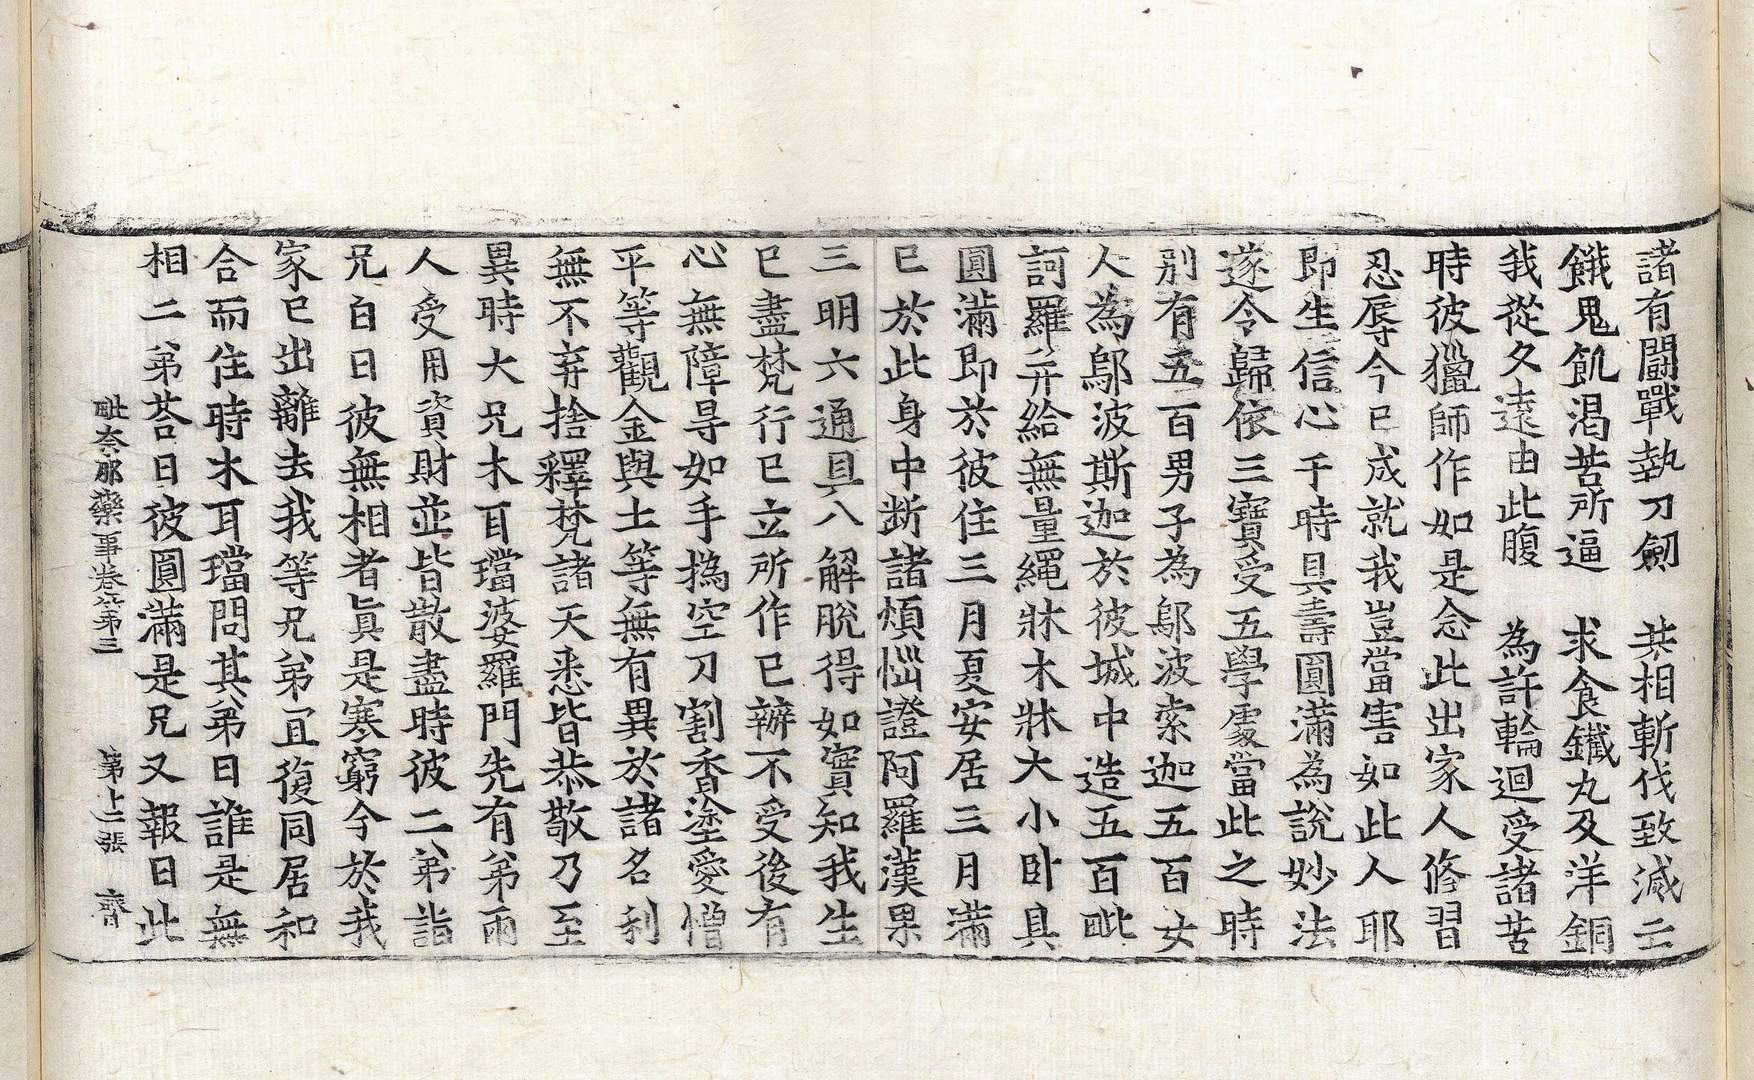 諸有鬪戰執刀劒　共相斬伐致滅亡
餓鬼飢渴苦所逼　求食鐵丸及洋銅
我從久遠由此腹　為許輪迴受諸苦
時彼獵師作如是念此出家人修習
忍辱今已成就我豈當害如此人耶
即生信心于時具壽圓滿為說妙法
遂令歸依三寶受五學處當此之時
別有五百男子為鄔波索迦五百女
人為鄔波斯迦於彼城中造五百毗
訶羅并給無量繩牀木牀大小卧具
圓滿即於彼住三月夏安居三月滿
已於此身中斷諸煩惱證阿羅漢果
三明六通具八解脫得如實知我生
已盡梵行已立所作已辦不受後有
心無障㝵如手撝空刀割香塗愛憎
平等觀金與土等無有異於諸名利
無不弃捨釋梵諸天悉皆恭敬乃至
異時大兄木耳璫婆羅門先有弟兩
人受用資財並皆散盡時彼二弟詣
兄白曰彼無相者真是寒窮今於我
家已出離去我等兄弟宜復同居和
合而住時木耳璫問其弟曰誰是無
相二弟荅曰彼圓滿是兄又報曰此
毗奈耶藥事卷第三　第十二張　齊